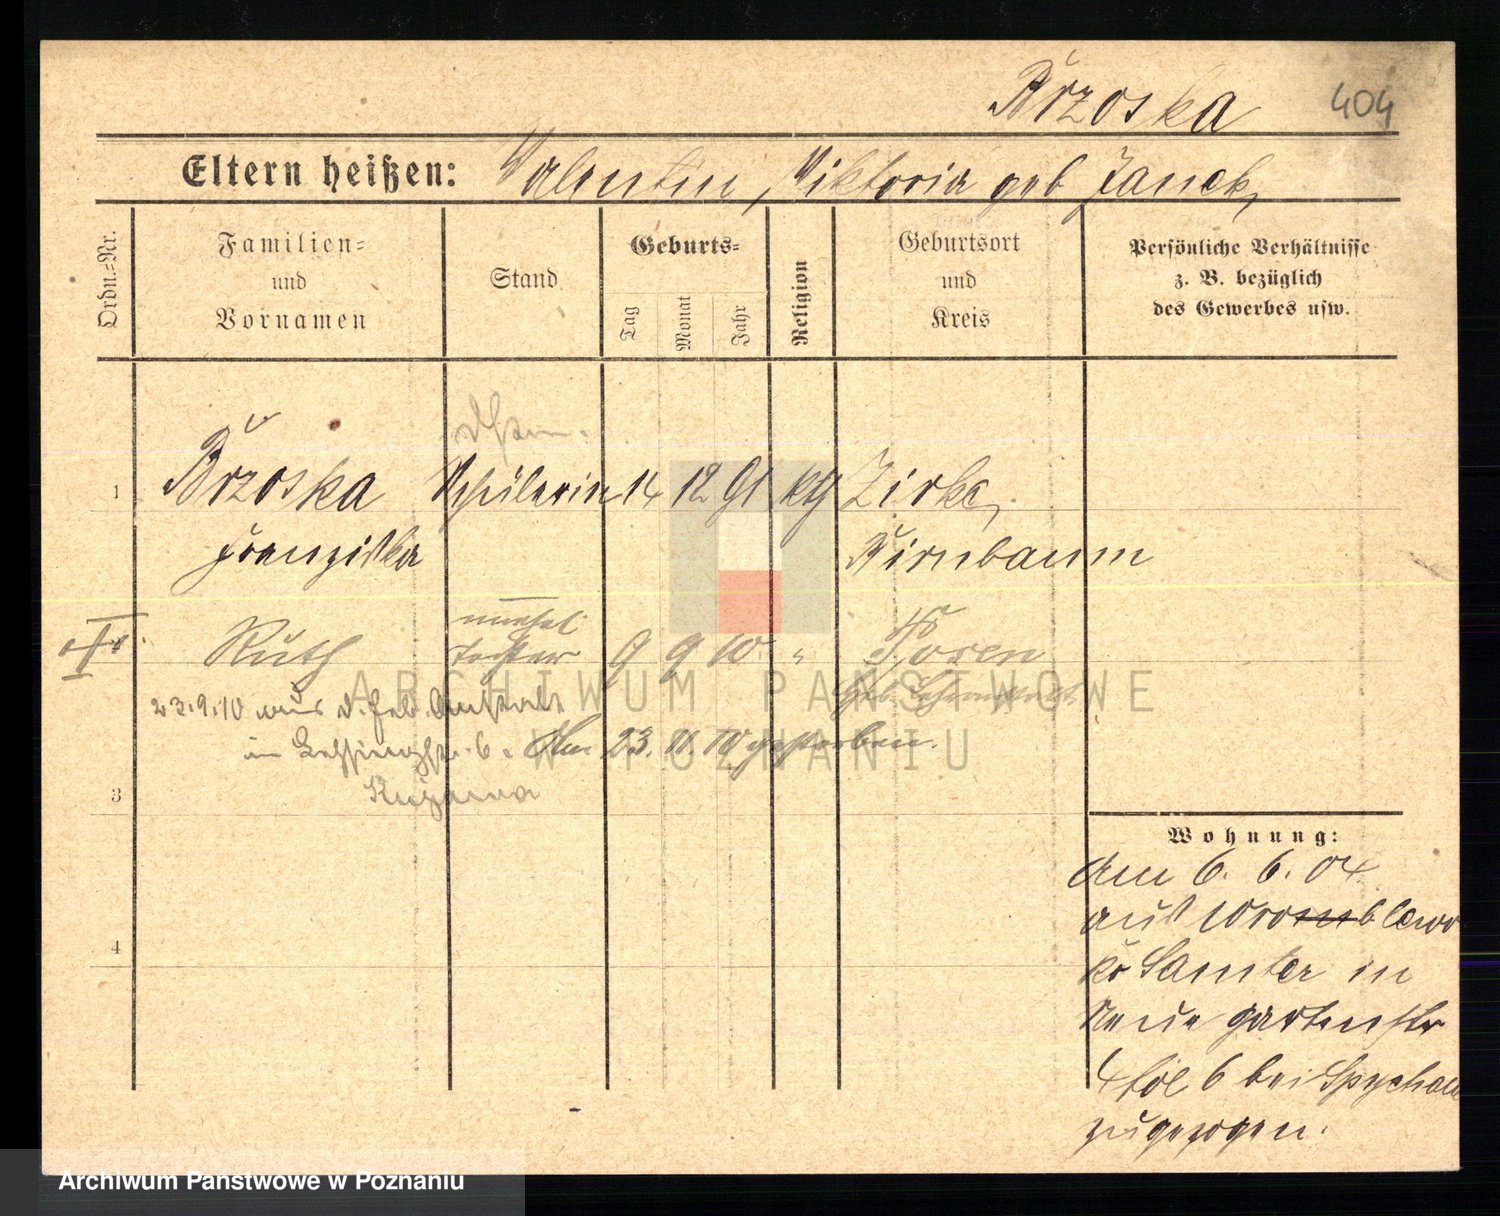 Brzoska 404
Eltern heißen: Valentin, Viktoria geb Janek,
Ordn.-Nr.
Familien-
und
Vornamen
Stand
Geburts-
Tag
Monat
Jahr
Religion
Geburtsort
und
Kreis
Persönliche Verhältnisse
z. B. bezüglich
des Gewerbes usw.
1 Brzoska Schülerin 14 12 91 kth Zirke,
Franziska Birnbaum
unehel.
Ruth Tochter 9 9 10 " Posen
23.9.10 aus d. Heb. Anstalt
in Lessingstr. 6. Am 23. 11. 10 gestorben.
3
4
Wohnung:
Am 6. 6. 04
aus
Kr Samter in
Neue Gartenstr
4 bei
zugezogen.
ARCHIWUM PAŃSTWOWE
W POZNANIU
Archiwum Państwowe w Poznaniu